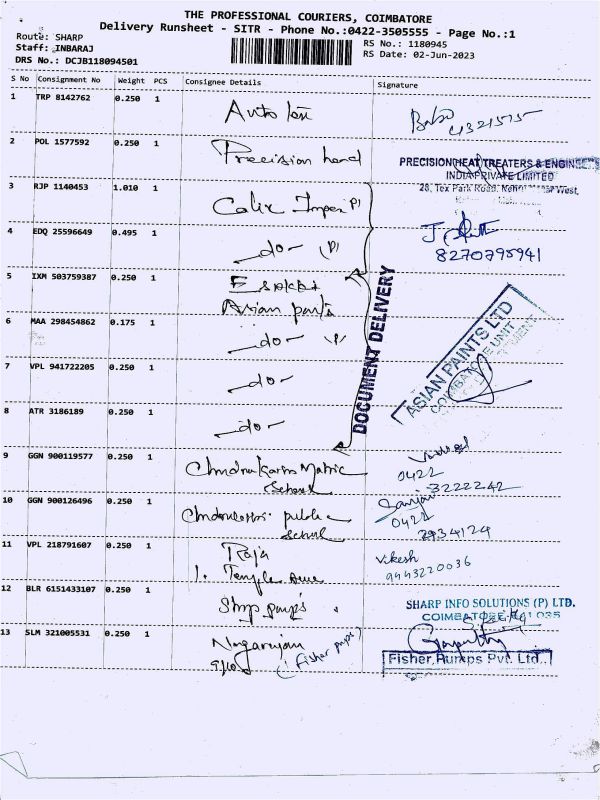 THE PROFESSIONAL COURIERS, COIMBATORE
Delivery Runsheet - SITR - Phone No.:0422-3505555 - Page No.:1
Route: SHARP
Staff: INBARAJ
DRS No.: DCJB118094501
RS No.: 1180945
RS Date: 02-Jun-2023
S No Consignment No Weight PCS Consignee Details Signature
1 TRP 8142762 0.250 1 Auto
2 POL 1577592 0.250 1 Precision
PRECISION HEAT TREATERS & ENGINEE
INDIA PRIVATE LIMITED
28, Tex Park Road, West,
3 RJP 1140453 1.010 1
4 EDQ 25596649 0.495 1 -do- (P)
8270795941
5 IXM 503759387 0.250 1
Asian paints
6 MAA 298454862 0.175 1 -do-
7 VPL 941722205 0.250 1 -do-
8 ATR 3186189 0.250 1 -do-
DOCUMENT DELIVERY
ASIAN PAINTS LTD
COIMBATORE UNIT
9 GGN 900119577 0.250 1 Matric
School
0422
3222242
10 GGN 900126496 0.250 1 public
School
Sanjai
0422
2934124
11 VPL 218791607 0.250 1 Raja
Temple
Vikesh
9443220036
12 BLR 6151433107 0.250 1
SHARP INFO SOLUTIONS (P) LTD.
COIMBATORE 641 035
13 SLM 321005531 0.250 1 Nagarajan
(Fisher pumps)
Fisher Pumps Pvt. Ltd.,